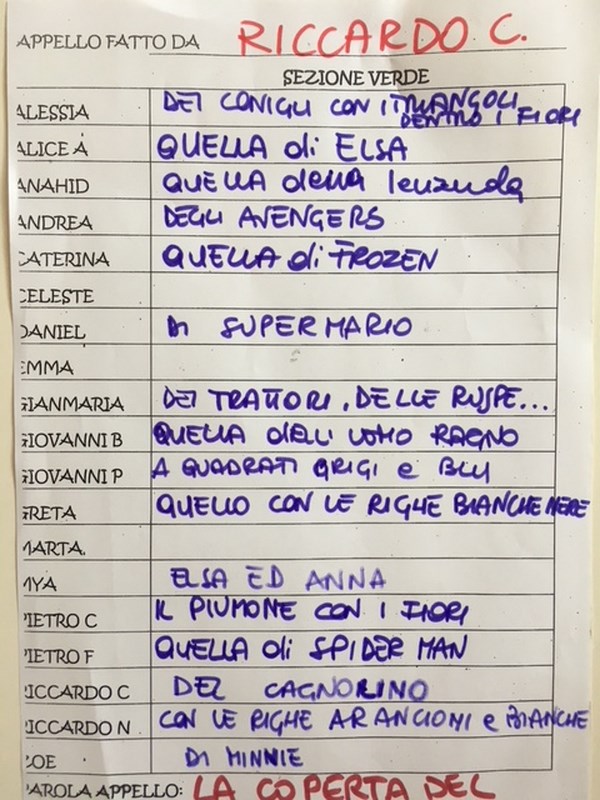 APPELLO FATTO DA RICCARDO C.
SEZIONE VERDE
ALESSIA DEI CONIGLI CON I TRIANGOLI
DENTRO I FIORI
ALICE A QUELLA di ELSA
ANAHID QUELLA della lenzuola
ANDREA DEGLI AVENGERS
CATERINA QUELLA di FROZEN
CELESTE
DANIEL DI SUPER MARIO
EMMA
GIANMARIA DEI TRATTORI, DELLE RUSPE...
GIOVANNI B QUELLA dell UOMO RAGNO
GIOVANNI P A QUADRATI GRIGI e BLU
GRETA QUELLO CON LE RIGHE BIANCHE NERE
MARTA.
MYA ELSA ED ANNA
PIETRO C IL PIUMONE CON I FIORI
PIETRO F QUELLA di SPIDER MAN
RICCARDO C DEL CAGNORINO
RICCARDO N CON LE RIGHE ARANCIONI e BIANCHE
ZOE DI MINNIE
PAROLA APPELLO: LA COPERTA DEL